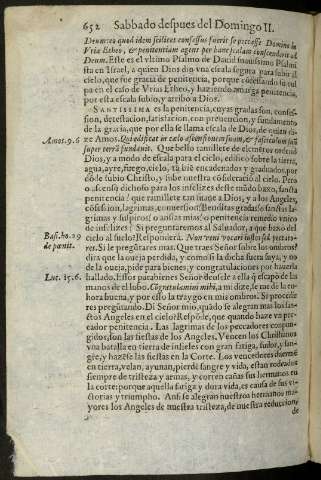 652 Sabbado despues del Domingo II.
Deum: eo quod idem scilicet confessus fuerit se peccasse Domino in
Vria Etheo, & penitentiam agere per hanc scalam conscendere ad
Deum. Este es el vltimo Psalmo de Dauid suauissimo Psalmi
sta en Israel, a quien Dios dio vna escala segura para subir al
cielo, que fue gracia de penitencia, porque confessando su cul
pa en el caso de Vrias Etheo, y haziendo amarga penitencia,
por esta escala subio, y arribo a Dios.
SANTISSIMA es la penitencia, cuyas gradas son, confes-
sion, detestacion, satisfacion, con preuencion, y fundamento
de la gracia, que por ella se llama escala de Dios, de quien di-
Amos. 9. 6
ze Amos. Qui aedificat in caelo ascensionem suam, & fasciculum suũ
super terrã fundauit. Que bello ramillete de
Dios, y a modo de escala para el cielo, edifico sobre la tierra,
agua, ayre, fuego, cielo, tã biẽ encadenados y graduados, por
dõde subio Christo, y sube nuestra cõsideraciõ al cielo. Pero
o ascensiõ dichosa para los infelizes deste mũdo baxo, santa
penitencia! que ramillete tan suaue a Dios, y a los Angeles,
cõfession, lagrimas, conuersos! Benditas gradas! o santas la-
grimas y suspiros! o ansias mias! o penitencia remedio vnico
de infelizes! Si preguntaremos al Saluador, a que baxo del
Basi. ho. 29
de pœnit.
cielo al suelo? Responderà. Non veni vocare iustos, sed peccato-
res. Si le pregũtaramos: Que traes Señor sobre los ombros?
dira que la oueja perdida, y como si la dicha fuera suya, y no
de la oueja, pide para bienes, y congratulaciones por hauerla
Luc. 15. 6.
hallado. Essos parabienes Señor denseles a ella q̃ escapò de las
manos de el lobo. Congratulamini mihi, a mi dize, se me de la en-
hora buena, y por esso la traygo en mis ombros. Si procede
res pregũtando. Di Señor mio, quãdo se alegran mas los san-
ctos Angeles en el cielo? Respõde, que quando baze va pe-
cador penitencia. Las lagrimas de los peccadores compun-
gidos, son las fiestas de los Angeles. Vencen los Christianos
vna batalla en tierra de infieles con gran fatiga, sudor, y san-
gre, y hazẽse las fiestas en la Corte. Los vencedores duermẽ
en tierra, velan, ayunan, pierdẽ sangre y vida, estan rodeados
siempre de tristeza y armas, y corren cañas sus hermanos en
la corte: porque aquella fatiga y dura vida, es causa de sus vi-
ctorias y triumpho. Ansi se alegran nuestros hermanos ma-
yores los Angeles de nuestra tristeza, de nuestra reduccion
de